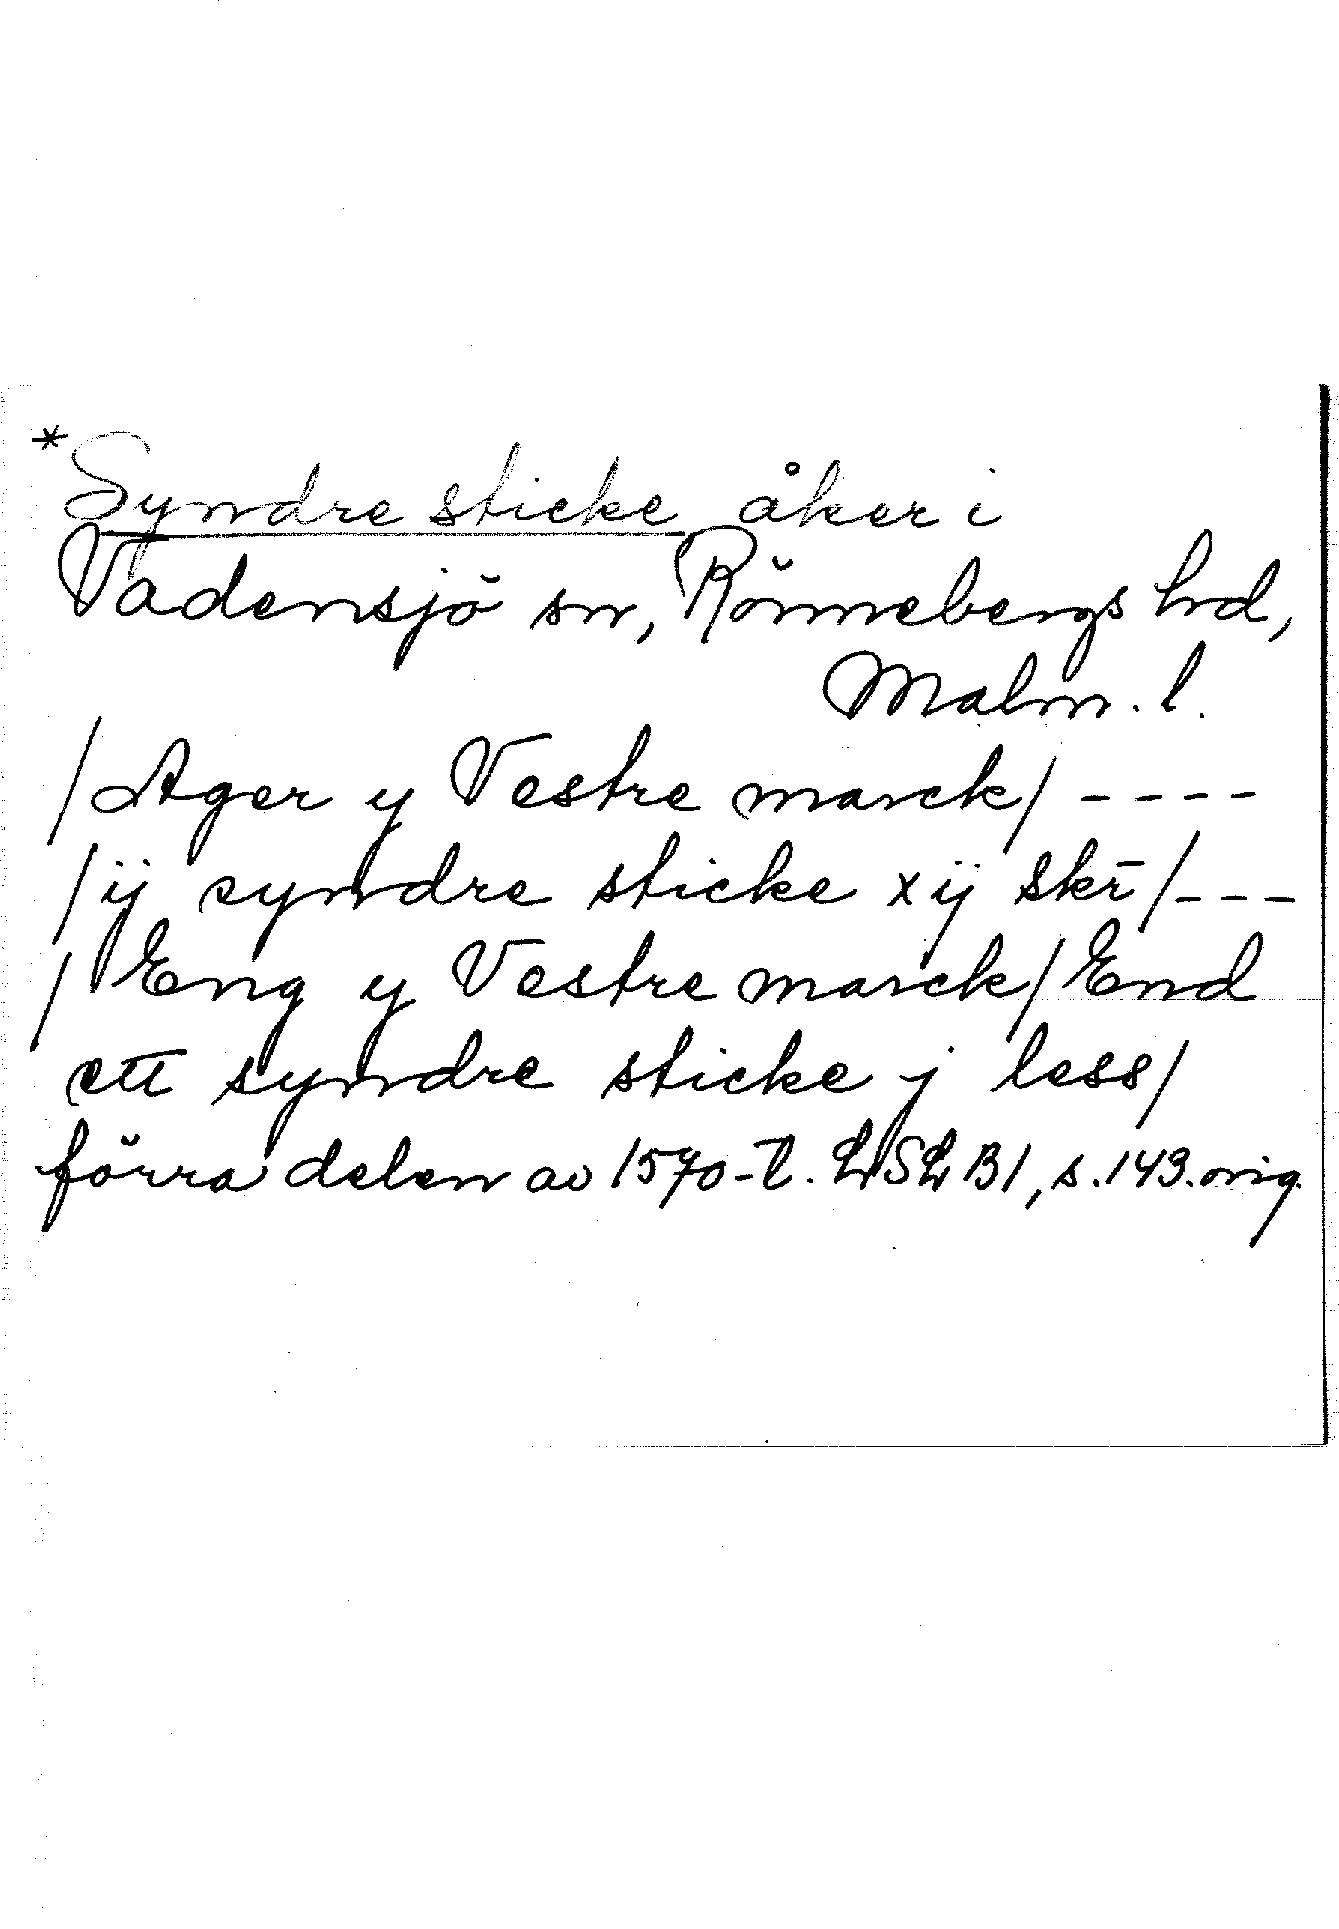 *Syndre sticke åker i
Vadensjö sn, Rönnebergs hd,
Malm. l.
/Ager y Vestre marck/ ----
/ij syndre sticke xij skr̄/---
/Eng y Vestre marck/End
ett syndre sticke j less/
förra delen av 1570-t. LSL B1, s.143.orig.